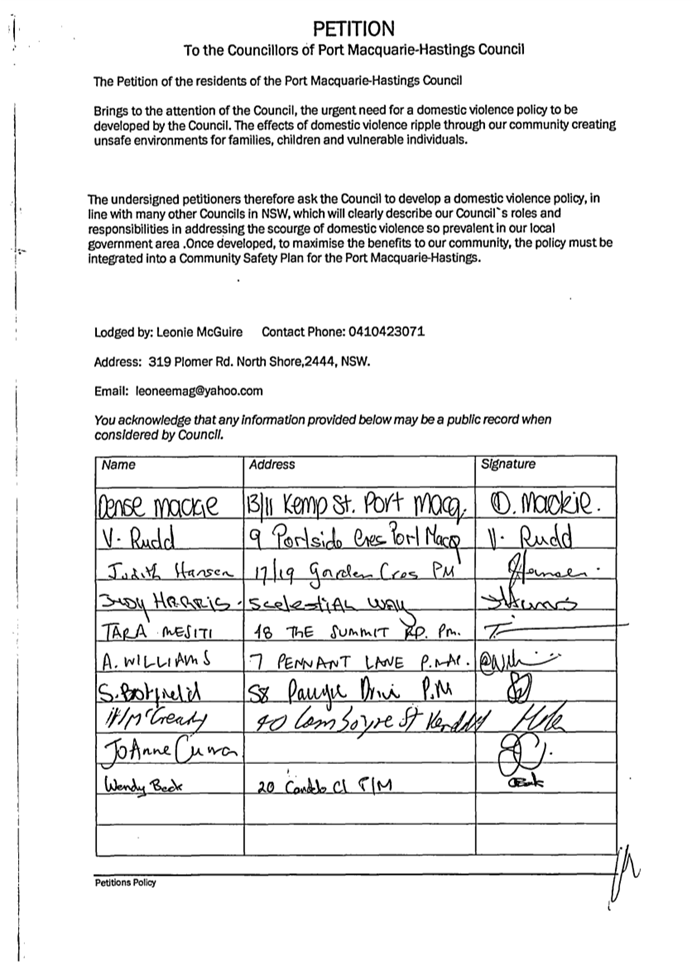 PETITION
To the Councillors of Port Macquarie-Hastings Council
The Petition of the residents of the Port Macquarie-Hastings Council
Brings to the attention of the Council, the urgent need for a domestic violence policy to be
developed by the Council. The effects of domestic violence ripple through our community creating
unsafe environments for families, children and vulnerable individuals.
The undersigned petitioners therefore ask the Council to develop a domestic violence policy, in
line with many other Councils in NSW, which will clearly describe our Council`s roles and
responsibilities in addressing the scourge of domestic violence so prevalent in our local
government area .Once developed, to maximise the benefits to our community, the policy must be
integrated into a Community Safety Plan for the Port Macquarie-Hastings.
Lodged by: Leonie McGuire Contact Phone: 0410423071
Address: 319 Plomer Rd. North Shore,2444, NSW.
Email: leoneemag@yahoo.com
You acknowledge that any information provided below may be a public record when
considered by Council.
Name Address Signature
Dense Mackie 13/11 Kemp St. Port Macq. D. Mackie.
V. Rudd 9 Portside Cres Port Macq V. Rudd
Judith Hansen 17/19 Garden Cres PM
JUDY HARRIS. 5 CELESTIAL WAY
TARA MESITI 18 THE SUMMIT RD. PM.
A. WILLIAMS 7 PENNANT LANE P.MAC.
S. Botfield 58 P.M
McCready 40 St
JoAnne
Wendy Beck 20 Cl P/M
Petitions Policy